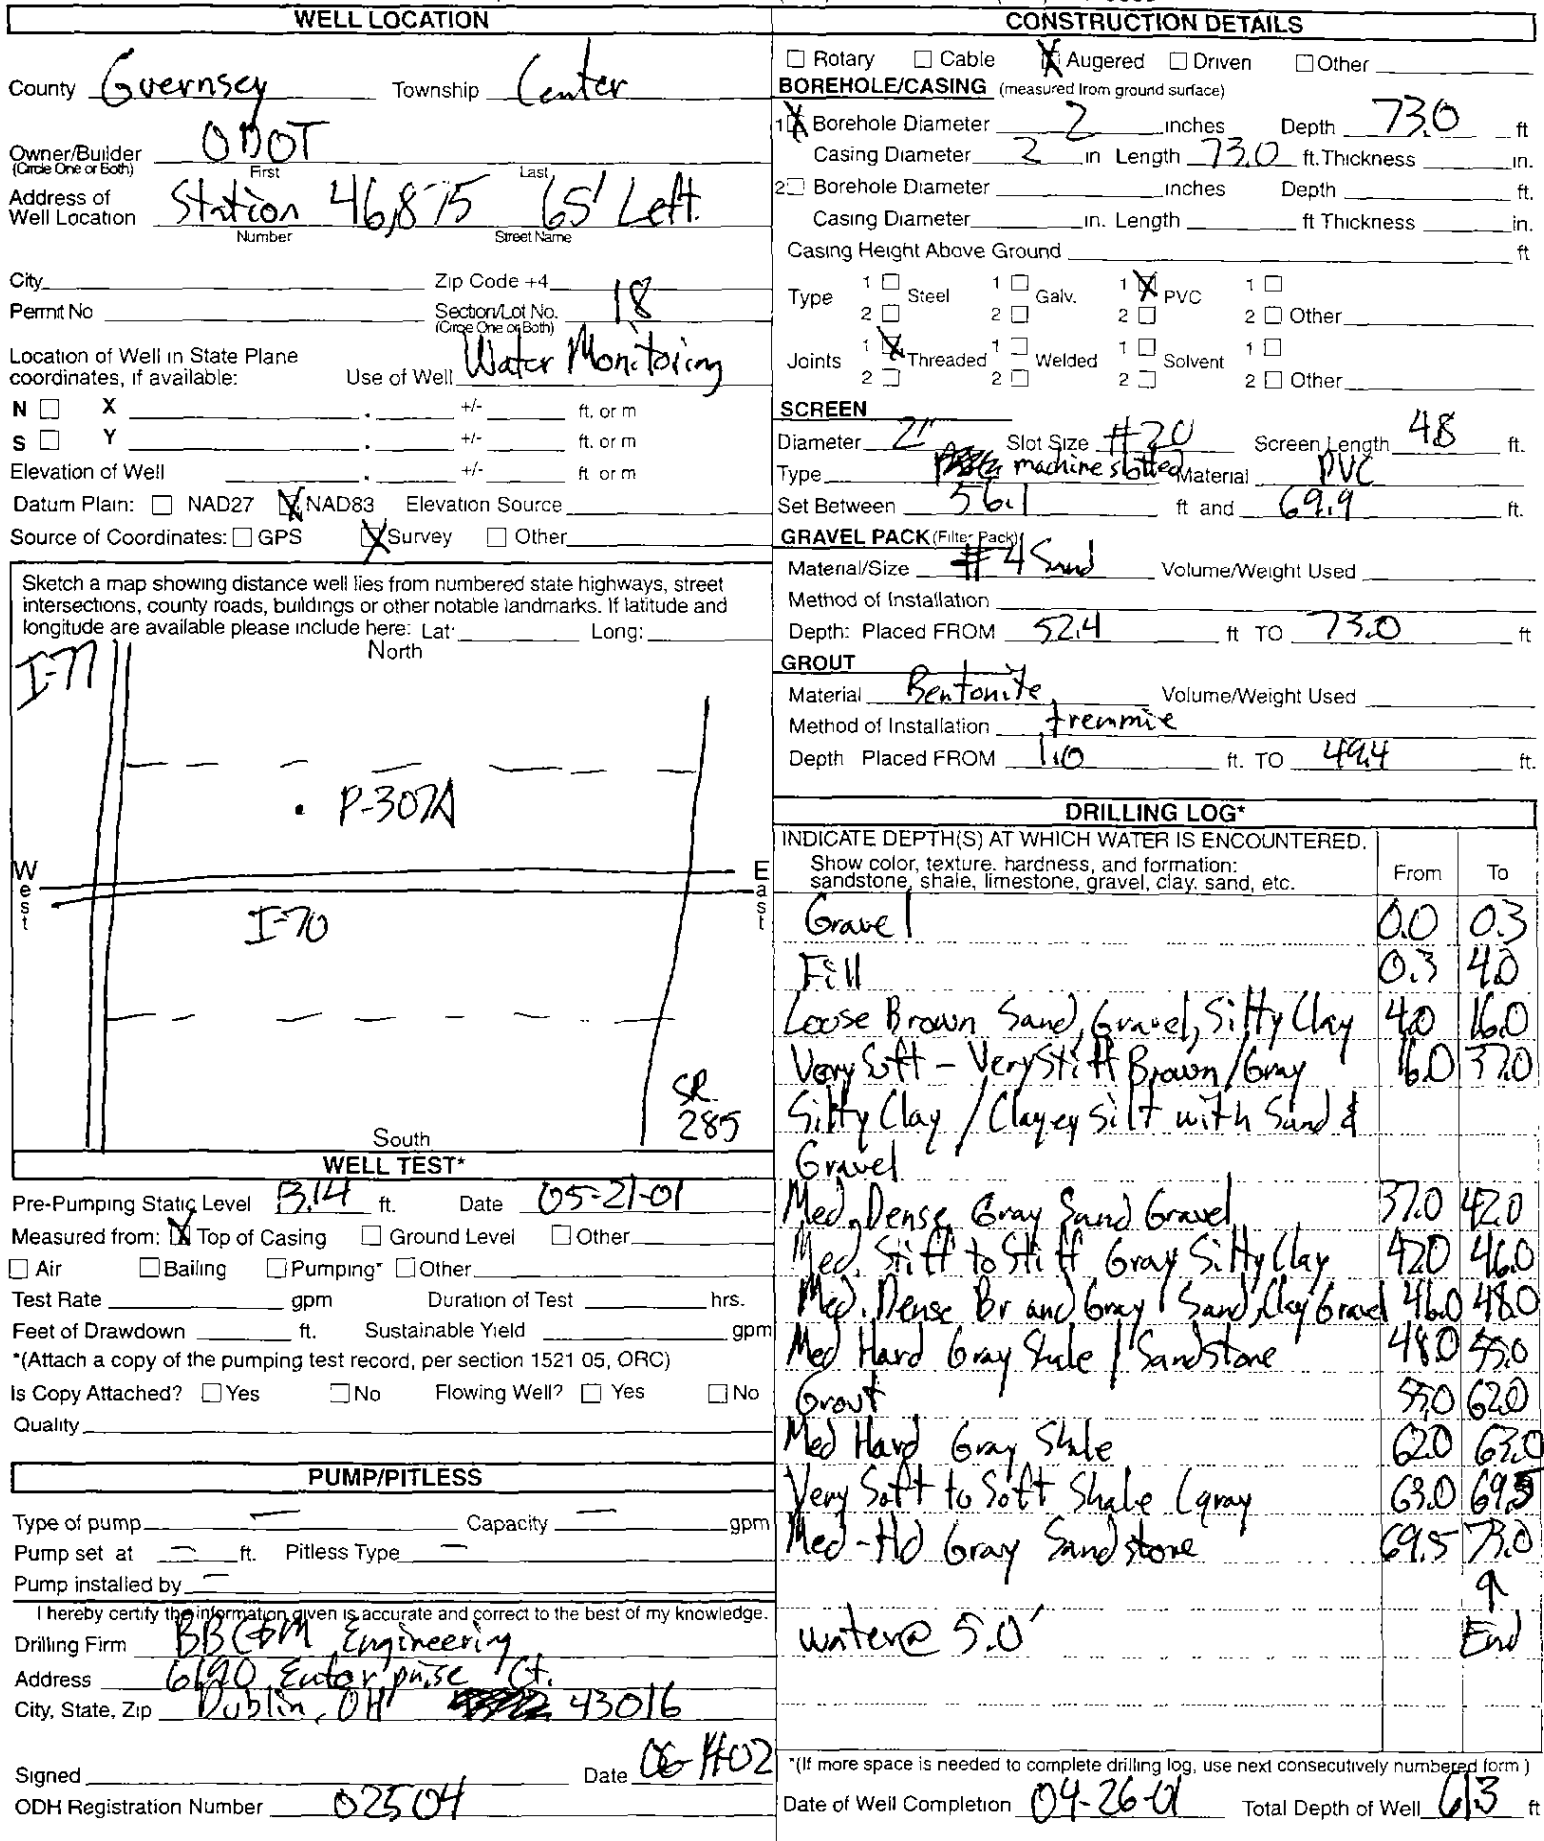 WELL LOCATION
County Guernsey Township Center
Owner/Builder ODOT
(Circle One or Both) First Last
Address of
Well Location Station 46,875 65' Left.
Number Street Name
City Zip Code +4
Permit No Section/Lot No. 18
(Circle One or Both)
Location of Well in State Plane
coordinates, if available: Use of Well Water Monitoring
N ☐ X . +/- ft. or m
S ☐ Y . +/- ft. or m
Elevation of Well . +/- ft or m
Datum Plain: ☐ NAD27 ☒ NAD83 Elevation Source
Source of Coordinates: ☐ GPS ☒ Survey ☐ Other
Sketch a map showing distance well lies from numbered state highways, street
intersections, county roads, buildings or other notable landmarks. If latitude and
longitude are available please include here: Lat: Long:
North
I-77
P-307A
West
East
I-70
SR
285
South
WELL TEST*
Pre-Pumping Static Level 13.14 ft. Date 05-21-01
Measured from: ☒ Top of Casing ☐ Ground Level ☐ Other
☐ Air ☐ Bailing ☐ Pumping* ☐ Other
Test Rate gpm Duration of Test hrs.
Feet of Drawdown ft. Sustainable Yield gpm
*(Attach a copy of the pumping test record, per section 1521 05, ORC)
Is Copy Attached? ☐ Yes ☐ No Flowing Well? ☐ Yes ☐ No
Quality
PUMP/PITLESS
Type of pump — Capacity — gpm
Pump set at — ft. Pitless Type —
Pump installed by —
I hereby certify the information given is accurate and correct to the best of my knowledge.
Drilling Firm BBC&M Engineering
Address 6190 Enterprise Ct.
City, State, Zip Dublin, OH 43016
Signed Date 06-14-02
ODH Registration Number 02504
CONSTRUCTION DETAILS
☐ Rotary ☐ Cable ☒ Augered ☐ Driven ☐ Other
BOREHOLE/CASING (measured from ground surface)
1 ☒ Borehole Diameter 2 inches Depth 73.0 ft
Casing Diameter 2 in Length 73.0 ft. Thickness in.
2 ☐ Borehole Diameter inches Depth ft.
Casing Diameter in. Length ft Thickness in.
Casing Height Above Ground ft
Type 1 ☐ Steel 1 ☐ Galv. 1 ☒ PVC 1 ☐
2 ☐ 2 ☐ 2 ☐ 2 ☐ Other
Joints 1 ☒ Threaded 1 ☐ Welded 1 ☐ Solvent 1 ☐
2 ☐ 2 ☐ 2 ☐ 2 ☐ Other
SCREEN
Diameter 2" Slot Size #20 Screen Length 4.8 ft.
Type machine slotted Material PVC
Set Between 56.1 ft and 69.9 ft.
GRAVEL PACK (Filter Pack)
Material/Size #4 Sand Volume/Weight Used
Method of Installation
Depth: Placed FROM 52.4 ft TO 73.0 ft
GROUT
Material Bentonite Volume/Weight Used
Method of Installation tremmie
Depth Placed FROM 1.0 ft. TO 49.4 ft.
DRILLING LOG*
INDICATE DEPTH(S) AT WHICH WATER IS ENCOUNTERED.
Show color, texture, hardness, and formation:
sandstone, shale, limestone, gravel, clay, sand, etc. From To
Gravel 0.0 0.3
Fill 0.3 4.0
Loose Brown Sand, Gravel, Silty Clay 4.0 16.0
Very Soft - Very Stiff Brown/Gray 16.0 37.0
Silty Clay / Clayey Silt with Sand &
Gravel
Med. Dense Gray Sand Gravel 37.0 42.0
Med. Stiff to Stiff Gray Silty Clay 42.0 46.0
Med. Dense Br and Gray Sand, Clay Gravel 46.0 48.0
Med Hard Gray Shale / Sandstone 48.0 55.0
Grout 55.0 62.0
Med Hard Gray Shale 62.0 63.0
Very Soft to Soft Shale (gray 63.0 69.5
Med-Hd Gray Sandstone 69.5 73.0
↑
water@ 5.0' End
*(If more space is needed to complete drilling log, use next consecutively numbered form )
Date of Well Completion 04-26-01 Total Depth of Well 61.3 ft